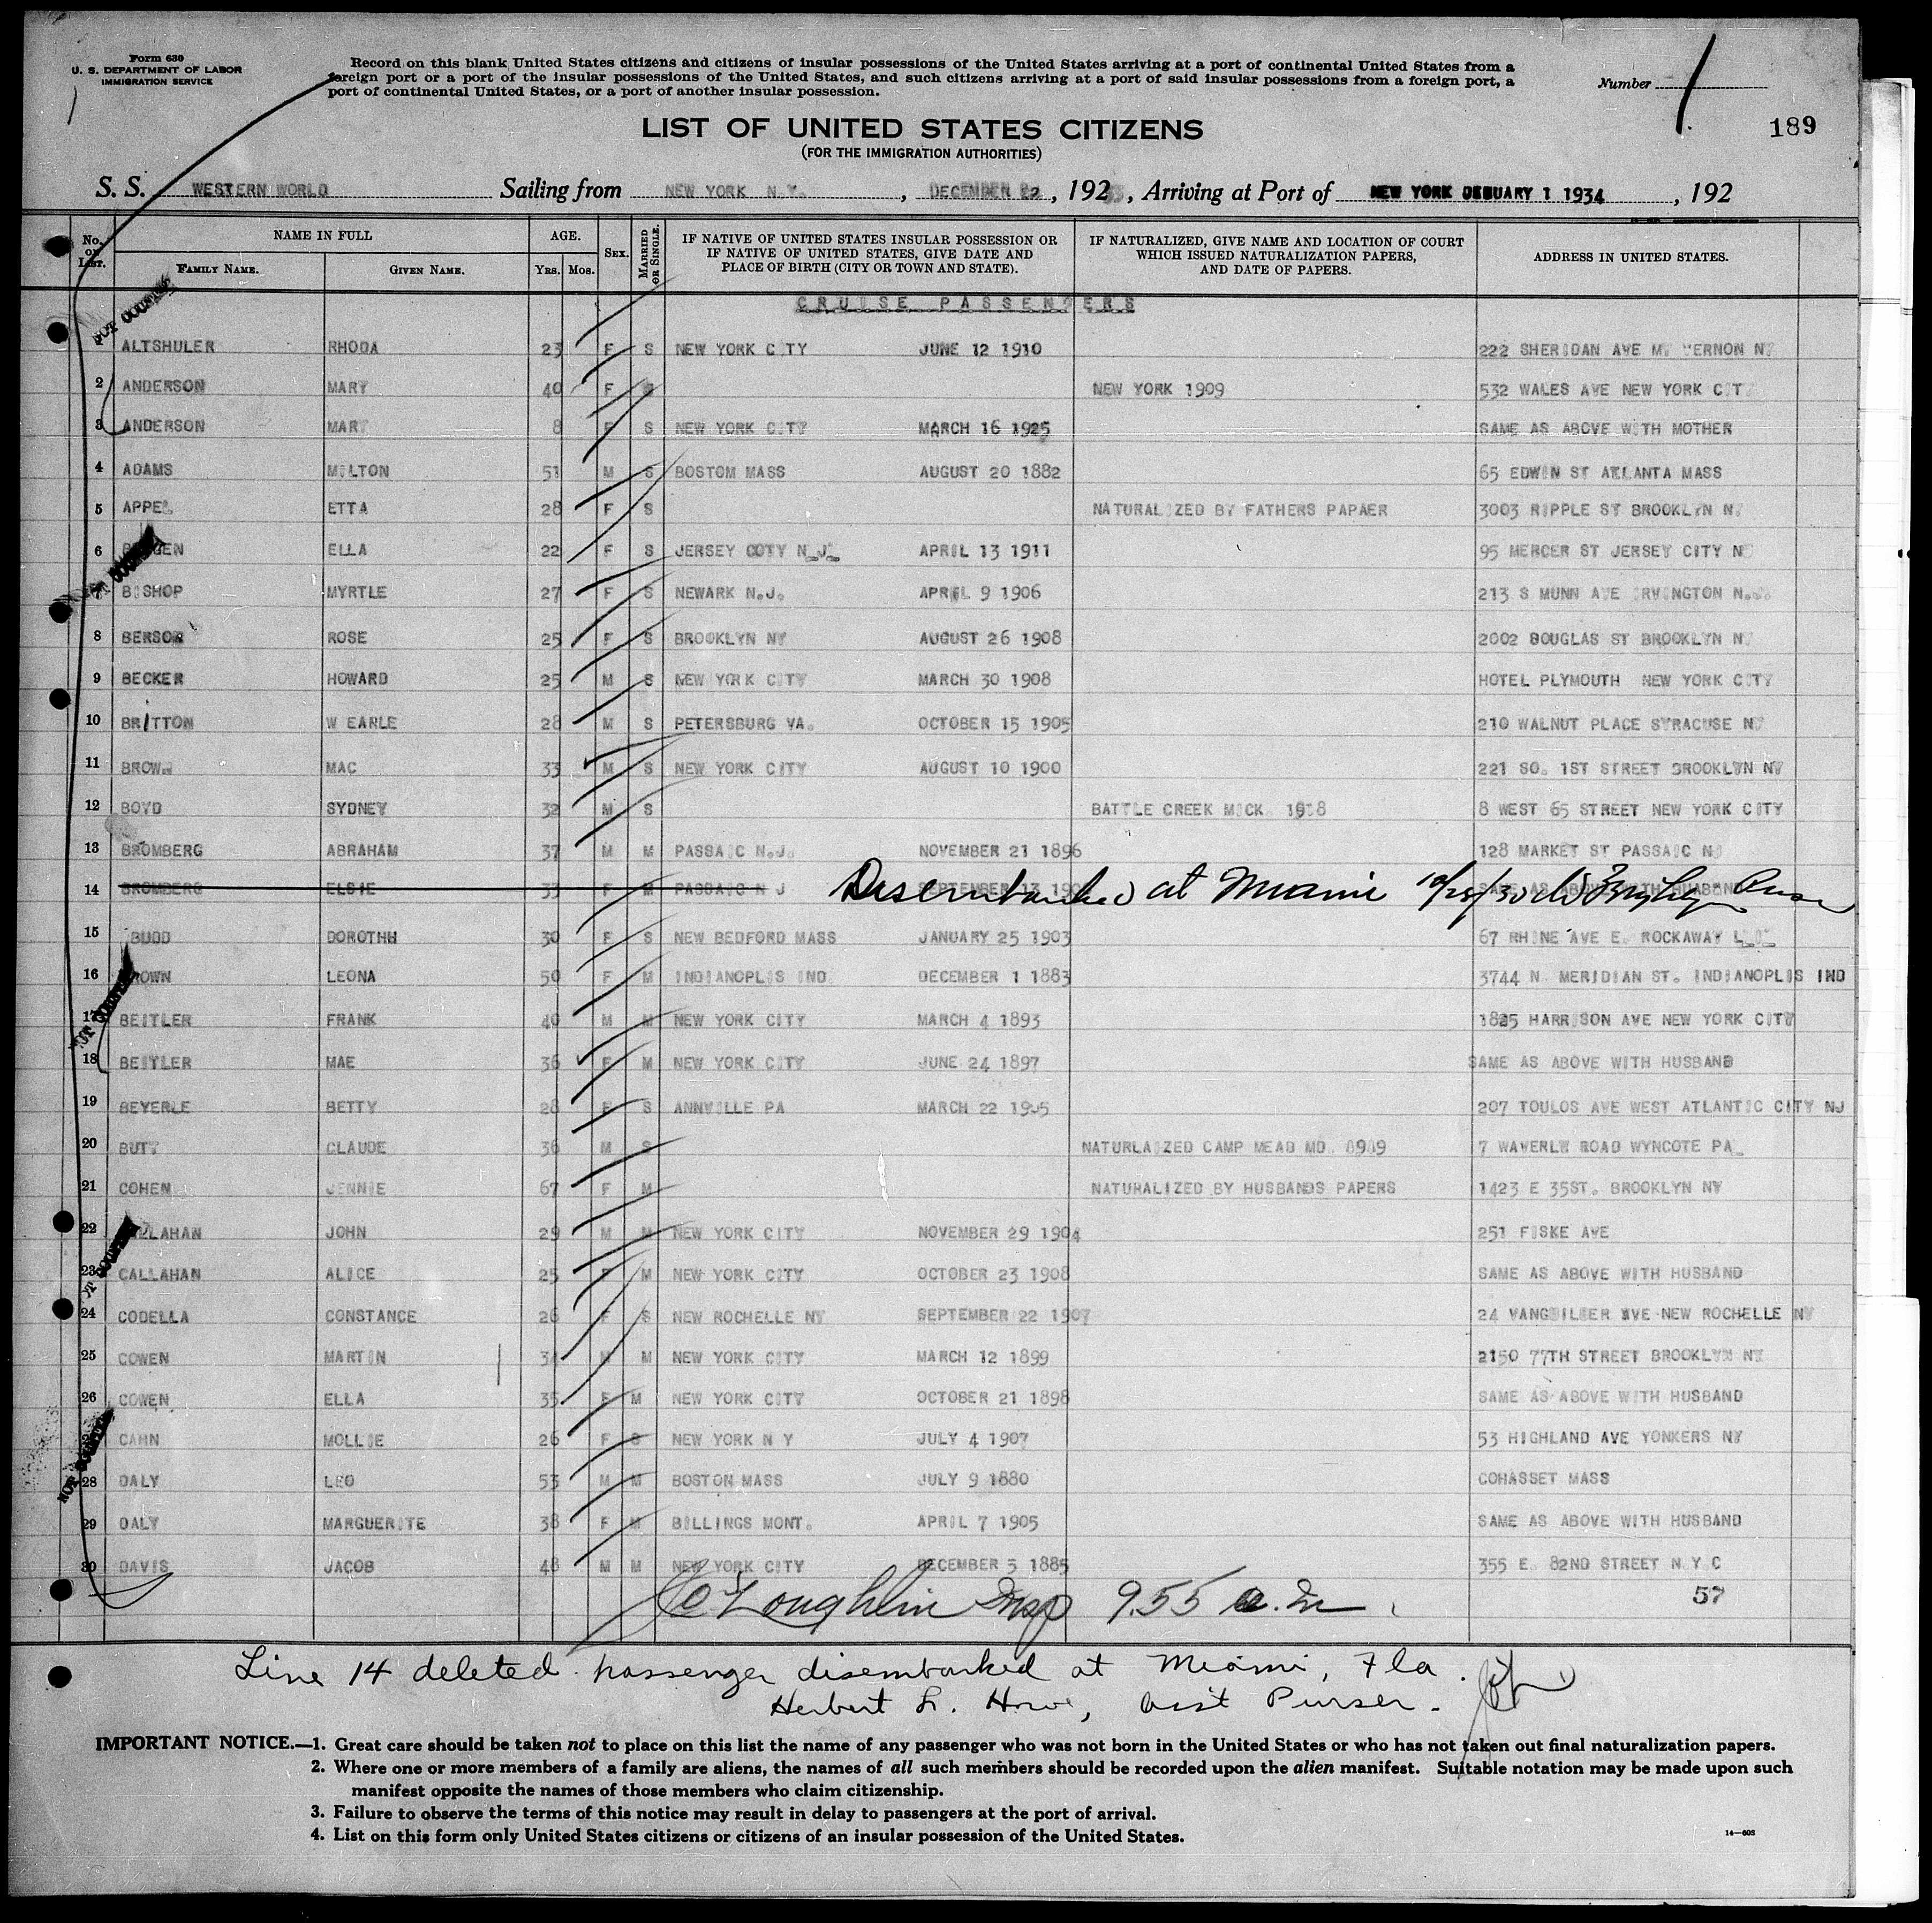 Form 630
U. S. DEPARTMENT OF LABOR
IMMIGRATION SERVICE
Record on this blank United States citizens and citizens of insular possessions of the United States arriving at a port of continental United States from a
foreign port or a port of the insular possessions of the United States, and such citizens arriving at a port of said insular possessions from a foreign port, a
port of continental United States, or a port of another insular possession.
Number 1
189
LIST OF UNITED STATES CITIZENS
(FOR THE IMMIGRATION AUTHORITIES)
S. S. WESTERN WORLD Sailing from NEW YORK N.Y., DECEMBER 22, 192 , Arriving at Port of NEW YORK 1 1934, 192
No. on List. NAME IN FULL AGE. Sex. Married or Single. IF NATIVE OF UNITED STATES INSULAR POSSESSION OR IF NATIVE OF UNITED STATES, GIVE DATE AND PLACE OF BIRTH (CITY OR TOWN AND STATE). IF NATURALIZED, GIVE NAME AND LOCATION OF COURT WHICH ISSUED NATURALIZATION PAPERS, AND DATE OF PAPERS. ADDRESS IN UNITED STATES.
Family Name. Given Name. Yrs. Mos.
CRUISE PASSENGERS
NOT COUNTED
ALTSHULER RHODA 23 F S NEW YORK CITY JUNE 12 1910 222 SHERIDAN AVE MT VERNON NY
2 ANDERSON MARY 40 F NEW YORK 1909 532 WALES AVE NEW YORK CITY
3 ANDERSON MARY 8 F S NEW YORK CITY MARCH 16 1925 SAME AS ABOVE WITH MOTHER
4 ADAMS MILTON 51 M S BOSTOM MASS AUGUST 20 1882 65 EDWIN ST ATLANTA MASS
5 APPEL ETTA 28 F S NATURALIZED BY FATHERS PAPAER 3003 RIPPLE ST BROOKLYN NY
6 ELLA 22 F S JERSEY COTY N J APRIL 13 1911 95 MERCER ST JERSEY CITY NJ
7 BISHOP MYRTLE 27 F S NEWARK N.J. APRIL 9 1906 213 S MUNN AVE IRVINGTON N.J.
8 BERSON ROSE 25 F S BROOKLYN NY AUGUST 26 1908 2002 DOUGLAS ST BROOKLYN NY
9 BECKER HOWARD 25 M S NEW YORK CITY MARCH 30 1908 HOTEL PLYMOUTH NEW YORK CITY
10 BRITTON W EARLE 28 M S PETERSBURG VA. OCTOBER 15 1905 210 WALNUT PLACE SYRACUSE NY
11 BROWN MAC 33 M S NEW YORK CITY AUGUST 10 1900 221 SO. 1ST STREET BROOKLYN NY
12 BOYD SYDNEY 32 M S BATTLE CREEK MICK. 1918 8 WEST 65 STREET NEW YORK CITY
13 BROMBERG ABRAHAM 37 M M PASSAIC N.J. NOVEMBER 21 1896 128 MARKET ST PASSAIC NJ
14 BROMBERG ELSIE 33 F M PASSAIC N J SEPTEMBER 13 Disembarked at Miami SAME AS ABOVE WITH HUSBAND
15 BUDD DOROTHH 30 F S NEW BEDFORD MASS JANUARY 25 1903 67 RHINE AVE E. ROCKAWAY L.I.
16 BROWN LEONA 50 F M INDIANOPLIS IND. DECEMBER 1 1883 3744 N. MERIDIAN ST. INDIANOPLIS IND
17 BEITLER FRANK 40 M M NEW YORK CITY MARCH 4 1893 1825 HARRISON AVE NEW YORK CITY
18 BEITLER MAE 36 F M NEW YORK CITY JUNE 24 1897 SAME AS ABOVE WITH HUSBAND
19 BEYERLE BETTY 28 F S ANNVILLE PA MARCH 22 1905 207 TOULOS AVE WEST ATLANTIC CITY NJ
20 BUTT CLAUDE 36 M S NATURLAIZED CAMP MEAD MD. 7 WAVERLY ROAD WYNCOTE PA
21 COHEN JENNIE 67 F M NATURALIZED BY HUSBANDS PAPERS 1423 E 35ST. BROOKLYN NY
22 CALLAHAN JOHN 29 M M NEW YORK CITY NOVEMBER 29 1904 251 FISKE AVE
23 CALLAHAN ALICE 25 F M NEW YORK CITY OCTOBER 23 1908 SAME AS ABOVE WITH HUSBAND
24 CODELLA CONSTANCE 26 F S NEW ROCHELLE NY SEPTEMBER 22 1907 24 AVE NEW ROCHELLE NY
25 COWEN MARTIN 34 M M NEW YORK CITY MARCH 12 1899 2150 77TH STREET BROOKLYN NY
26 COWEN ELLA 35 F M NEW YORK CITY OCTOBER 21 1898 SAME AS ABOVE WITH HUSBAND
CAHN MOLLIE 26 F S NEW YORK N Y JULY 4 1907 53 HIGHLAND AVE YONKERS NY
28 DALY LEO 53 M M BOSTON MASS JULY 9 1880 COHASSET MASS
29 DALY MARGUERITE 38 F M BILLINGS MONT. APRIL 7 1905 SAME AS ABOVE WITH HUSBAND
30 DAVIS JACOB 48 M M NEW YORK CITY DECEMBER 5 1885 355 E. 82ND STREET N.Y.C
O'Loughlin Insp 9.55 a.m. 57
Line 14 deleted passenger disembarked at Miami, Fla.
Herbert L. Howe, Asst Purser.
IMPORTANT NOTICE.—1. Great care should be taken not to place on this list the name of any passenger who was not born in the United States or who has not taken out final naturalization papers.
2. Where one or more members of a family are aliens, the names of all such members should be recorded upon the alien manifest. Suitable notation may be made upon such
manifest opposite the names of those members who claim citizenship.
3. Failure to observe the terms of this notice may result in delay to passengers at the port of arrival.
4. List on this form only United States citizens or citizens of an insular possession of the United States.
14—608